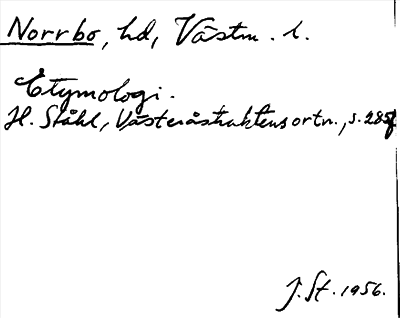 Norrbo, hd, Västm. l.
Etymologi.
H. Ståhl, Västeråstraktens ortn., s. 285f
J. St. 1956.